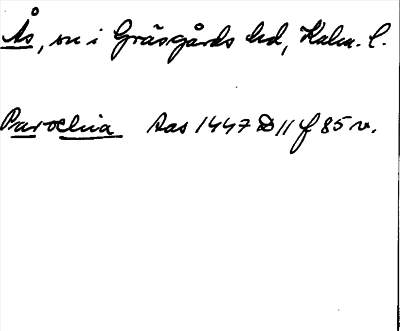 Ås, sn i Gräsgårds hd, Kalm. l.
Parochia Aas 1447 D 11 f 85 v.